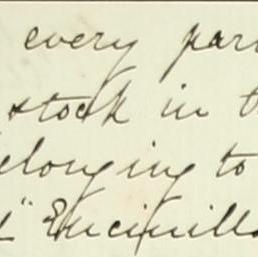 every par
stock in t
elonging to
" Encinilla